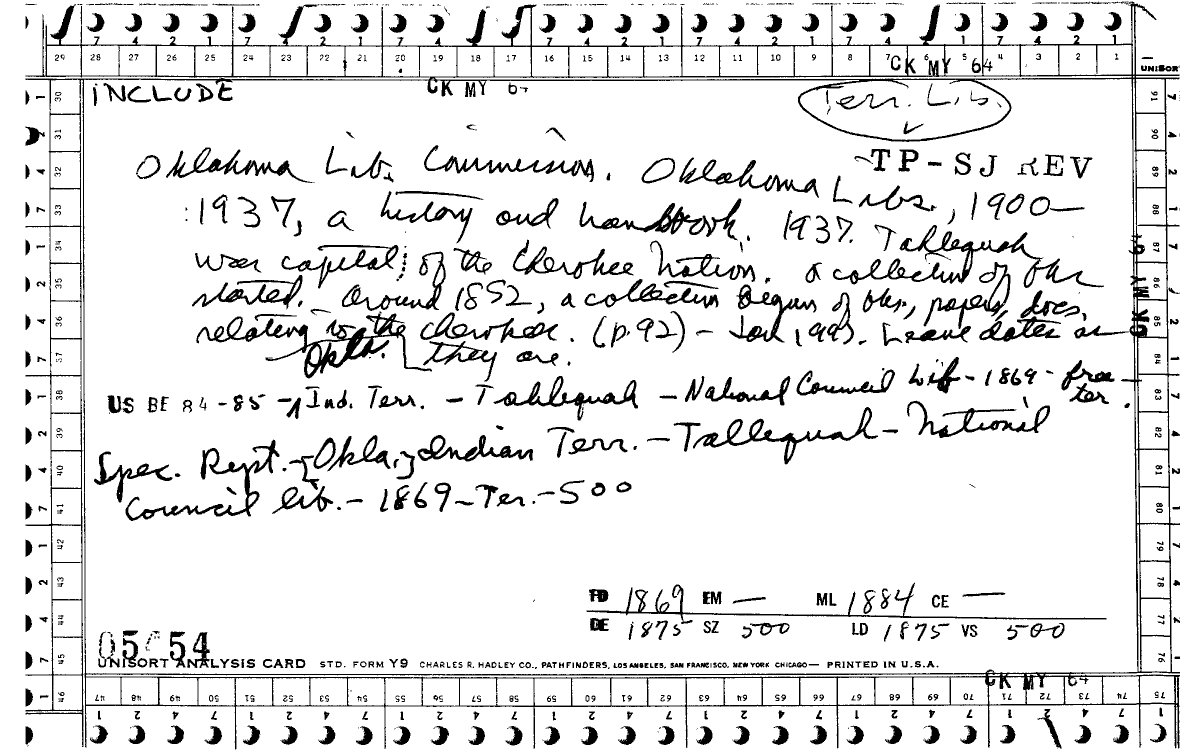 7 4 2 1 7 4 2 1 7 4 2 1 7 4 2 1 7 4 2 1 7 4 2 1 7 4 2 1
29 28 27 26 25 24 23 22 21 20 19 18 17 16 15 14 13 12 11 10 9 8 7 6 5 4 3 2 1
CK MY 64
UNISORT
INCLUDE
CK MY 64
Terr. Lib.
TP-SJ REV
Oklahoma Lib. Commission. Oklahoma Libs., 1900-
1937, a history and handbook. 1937. Tahlequah
was capital of the Cherokee Nation. A collection of bks
started. Around 1852, a collection begun of bks, papers, docs.
relating to the Cherokee. (p.92) - Jan 1993. Leave dates as
Okla. they are.
US BE 84-85 - Ind. Terr. - Tahlequah - National Council Lib - 1869 - free
ter.
Spec. Rept. - [Okla.] Indian Terr. - Tallequah - National
Council lib. - 1869 - Ter. - 500
FD 1869 EM — ML 1884 CE —
DE 1875 SZ 500 LD 1875 VS 500
UNISORT ANALYSIS CARD STD. FORM Y9 CHARLES R. HADLEY CO., PATHFINDERS, LOS ANGELES, SAN FRANCISCO, NEW YORK CHICAGO — PRINTED IN U.S.A.
CK MY 64
47 48 49 50 51 52 53 54 55 56 57 58 59 60 61 62 63 64 65 66 67 68 69 70 71 72 73 74 75
1 2 4 7 1 2 4 7 1 2 4 7 1 2 4 7 1 2 4 7 1 2 4 7 1 2 4 7 1